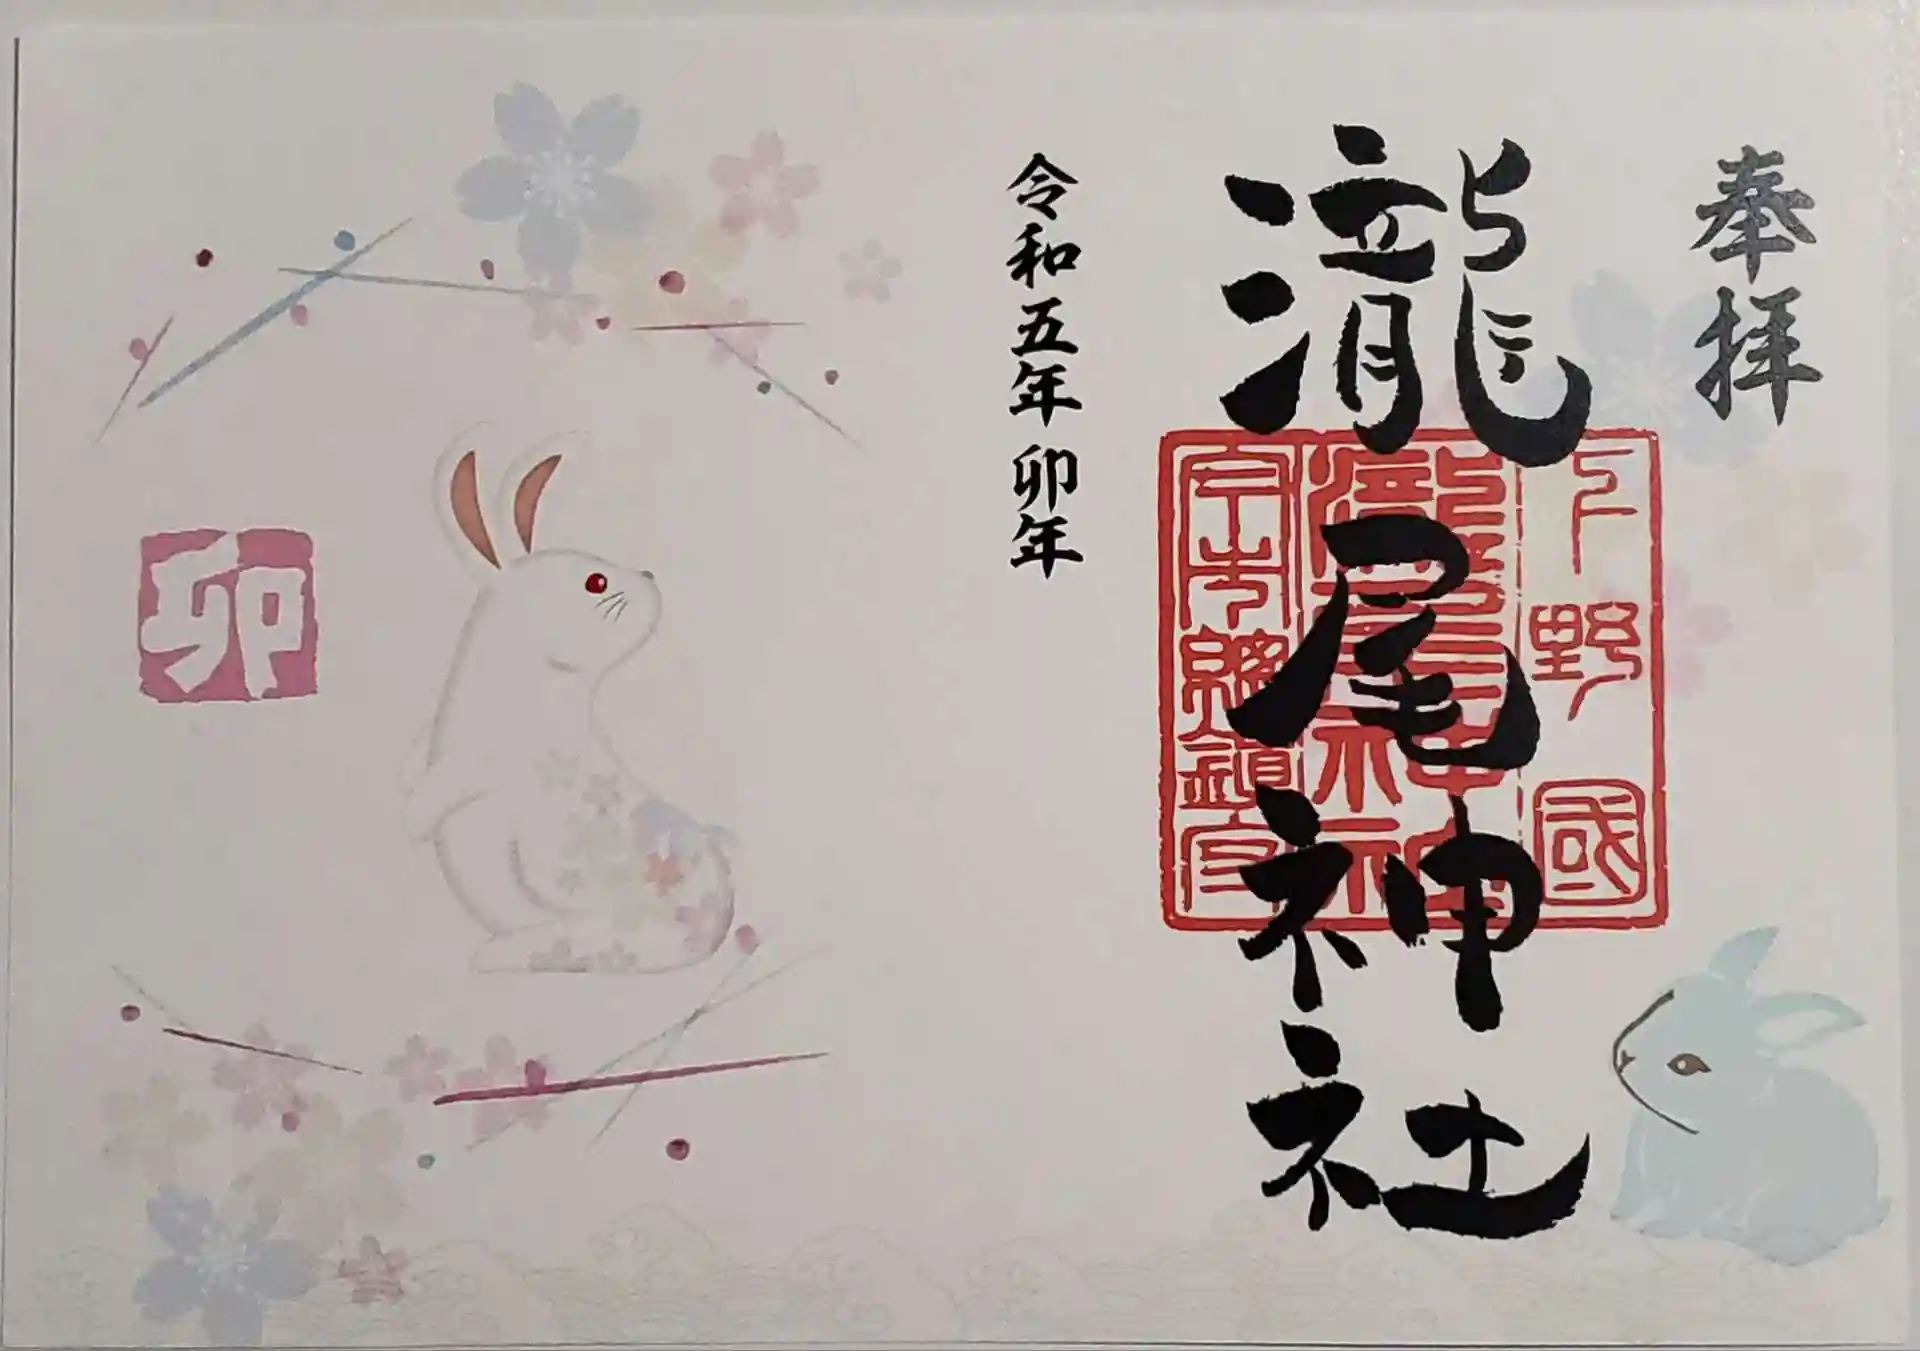 奉拝
下野國
瀧尾神社
宇都宮総鎮守
瀧尾神社
令和五年 卯年
卯